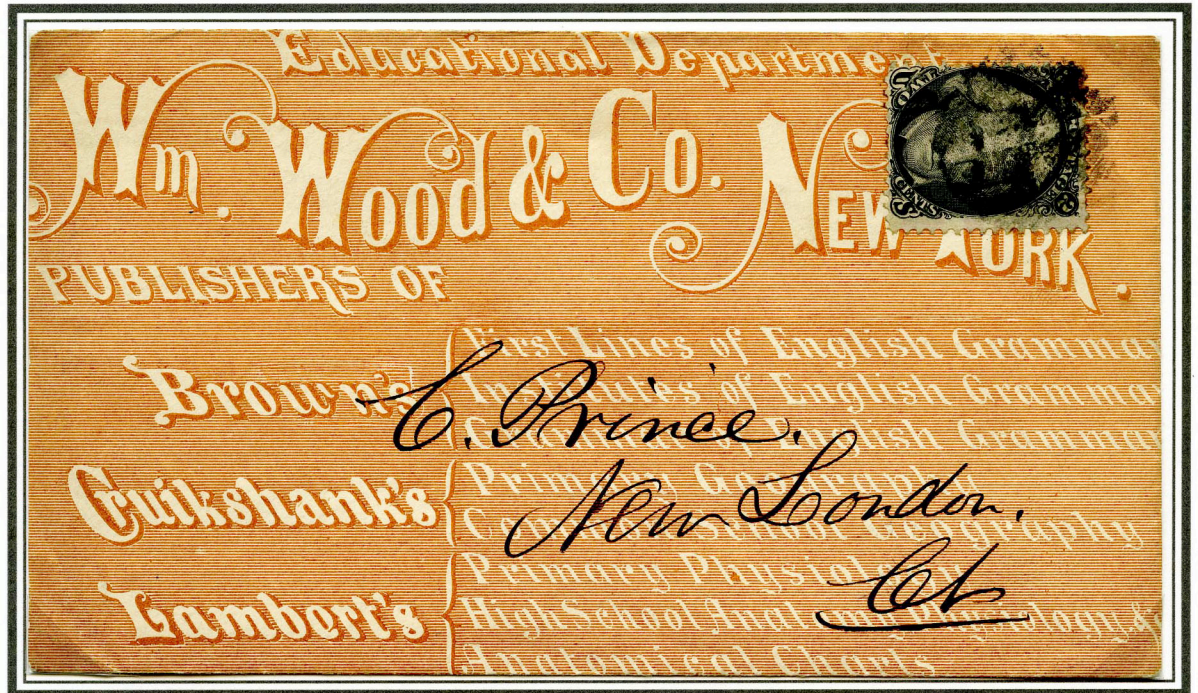 Educational Department
Wm. Wood & Co. New York.
PUBLISHERS OF
Brown's
First Lines of English Gramma
Institutes of English Gramma
of English Gramma
Cruikshank's
Primary Geography
School Geography
Lambert's
Primary Physiology
High School Anat. Physiology &
Anatomical Charts
C. Prince.
New London.
Ct
CENTS